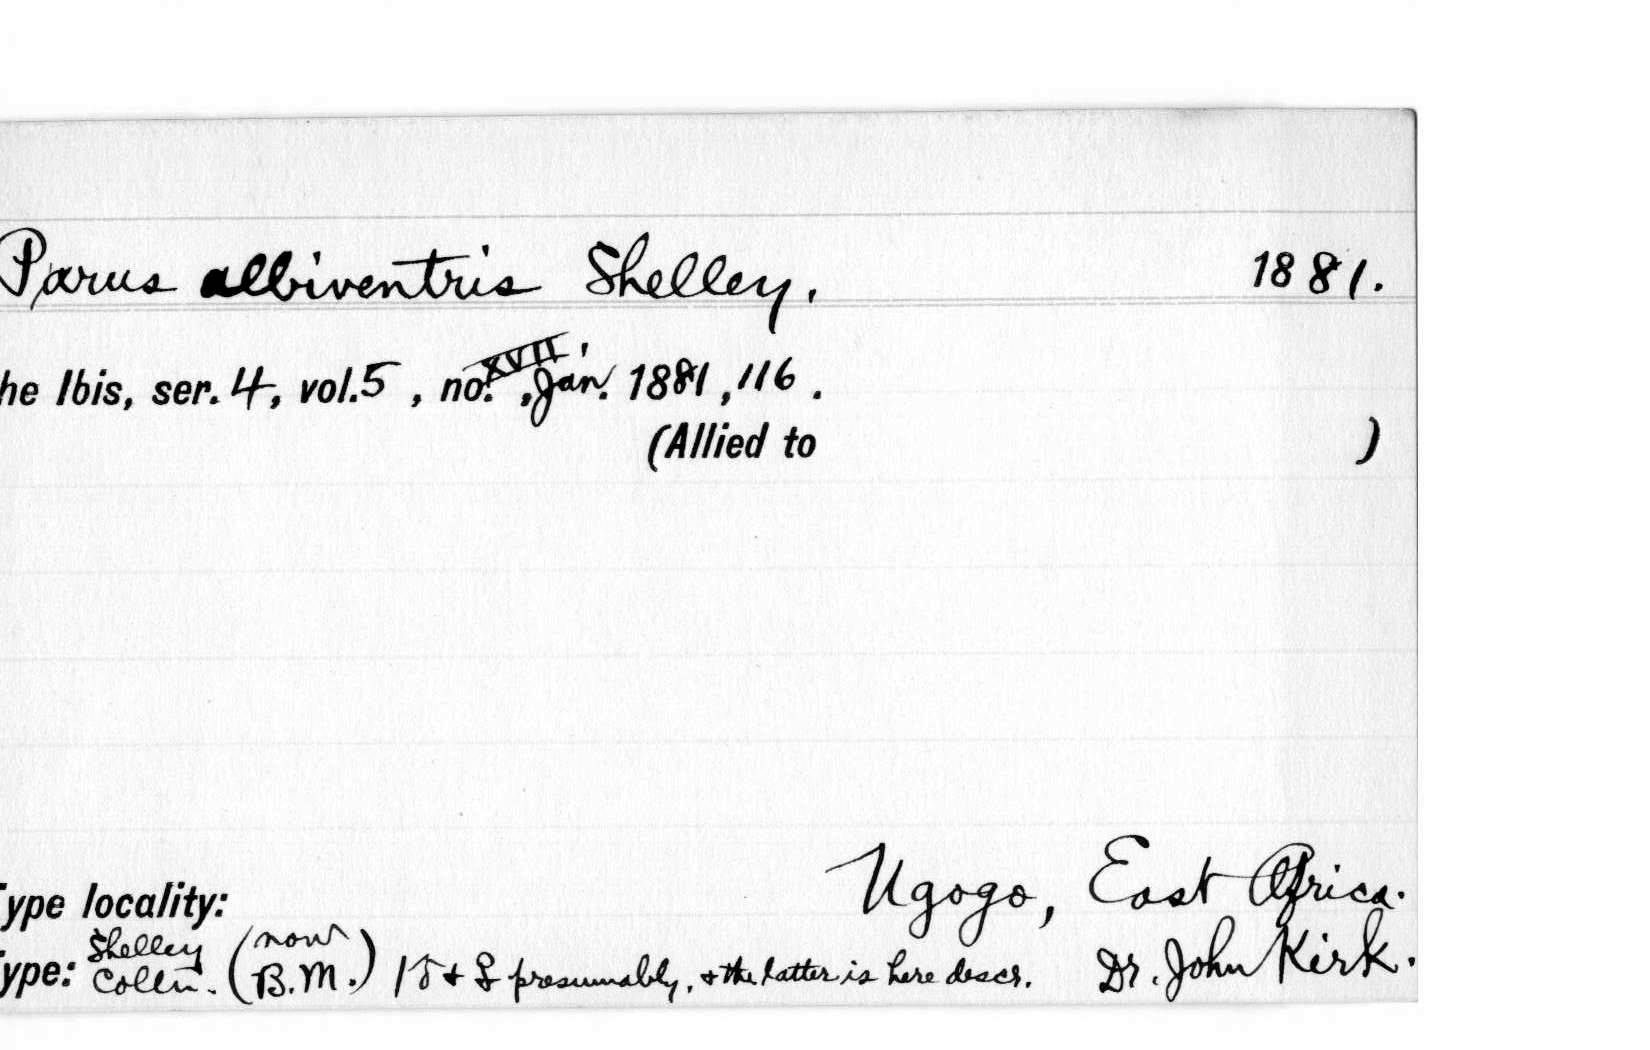 Parus albiventris Shelley, 1881.
he Ibis, ser. 4, vol. 5, no. XVII, Jan. 1881, 116.
(Allied to )
Ugogo, East Africa.
ype locality:
ype: Shelley Colln. (now B.M.) 1♂ + ♀ presumably, + the latter is here descr. Dr. John Kirk.